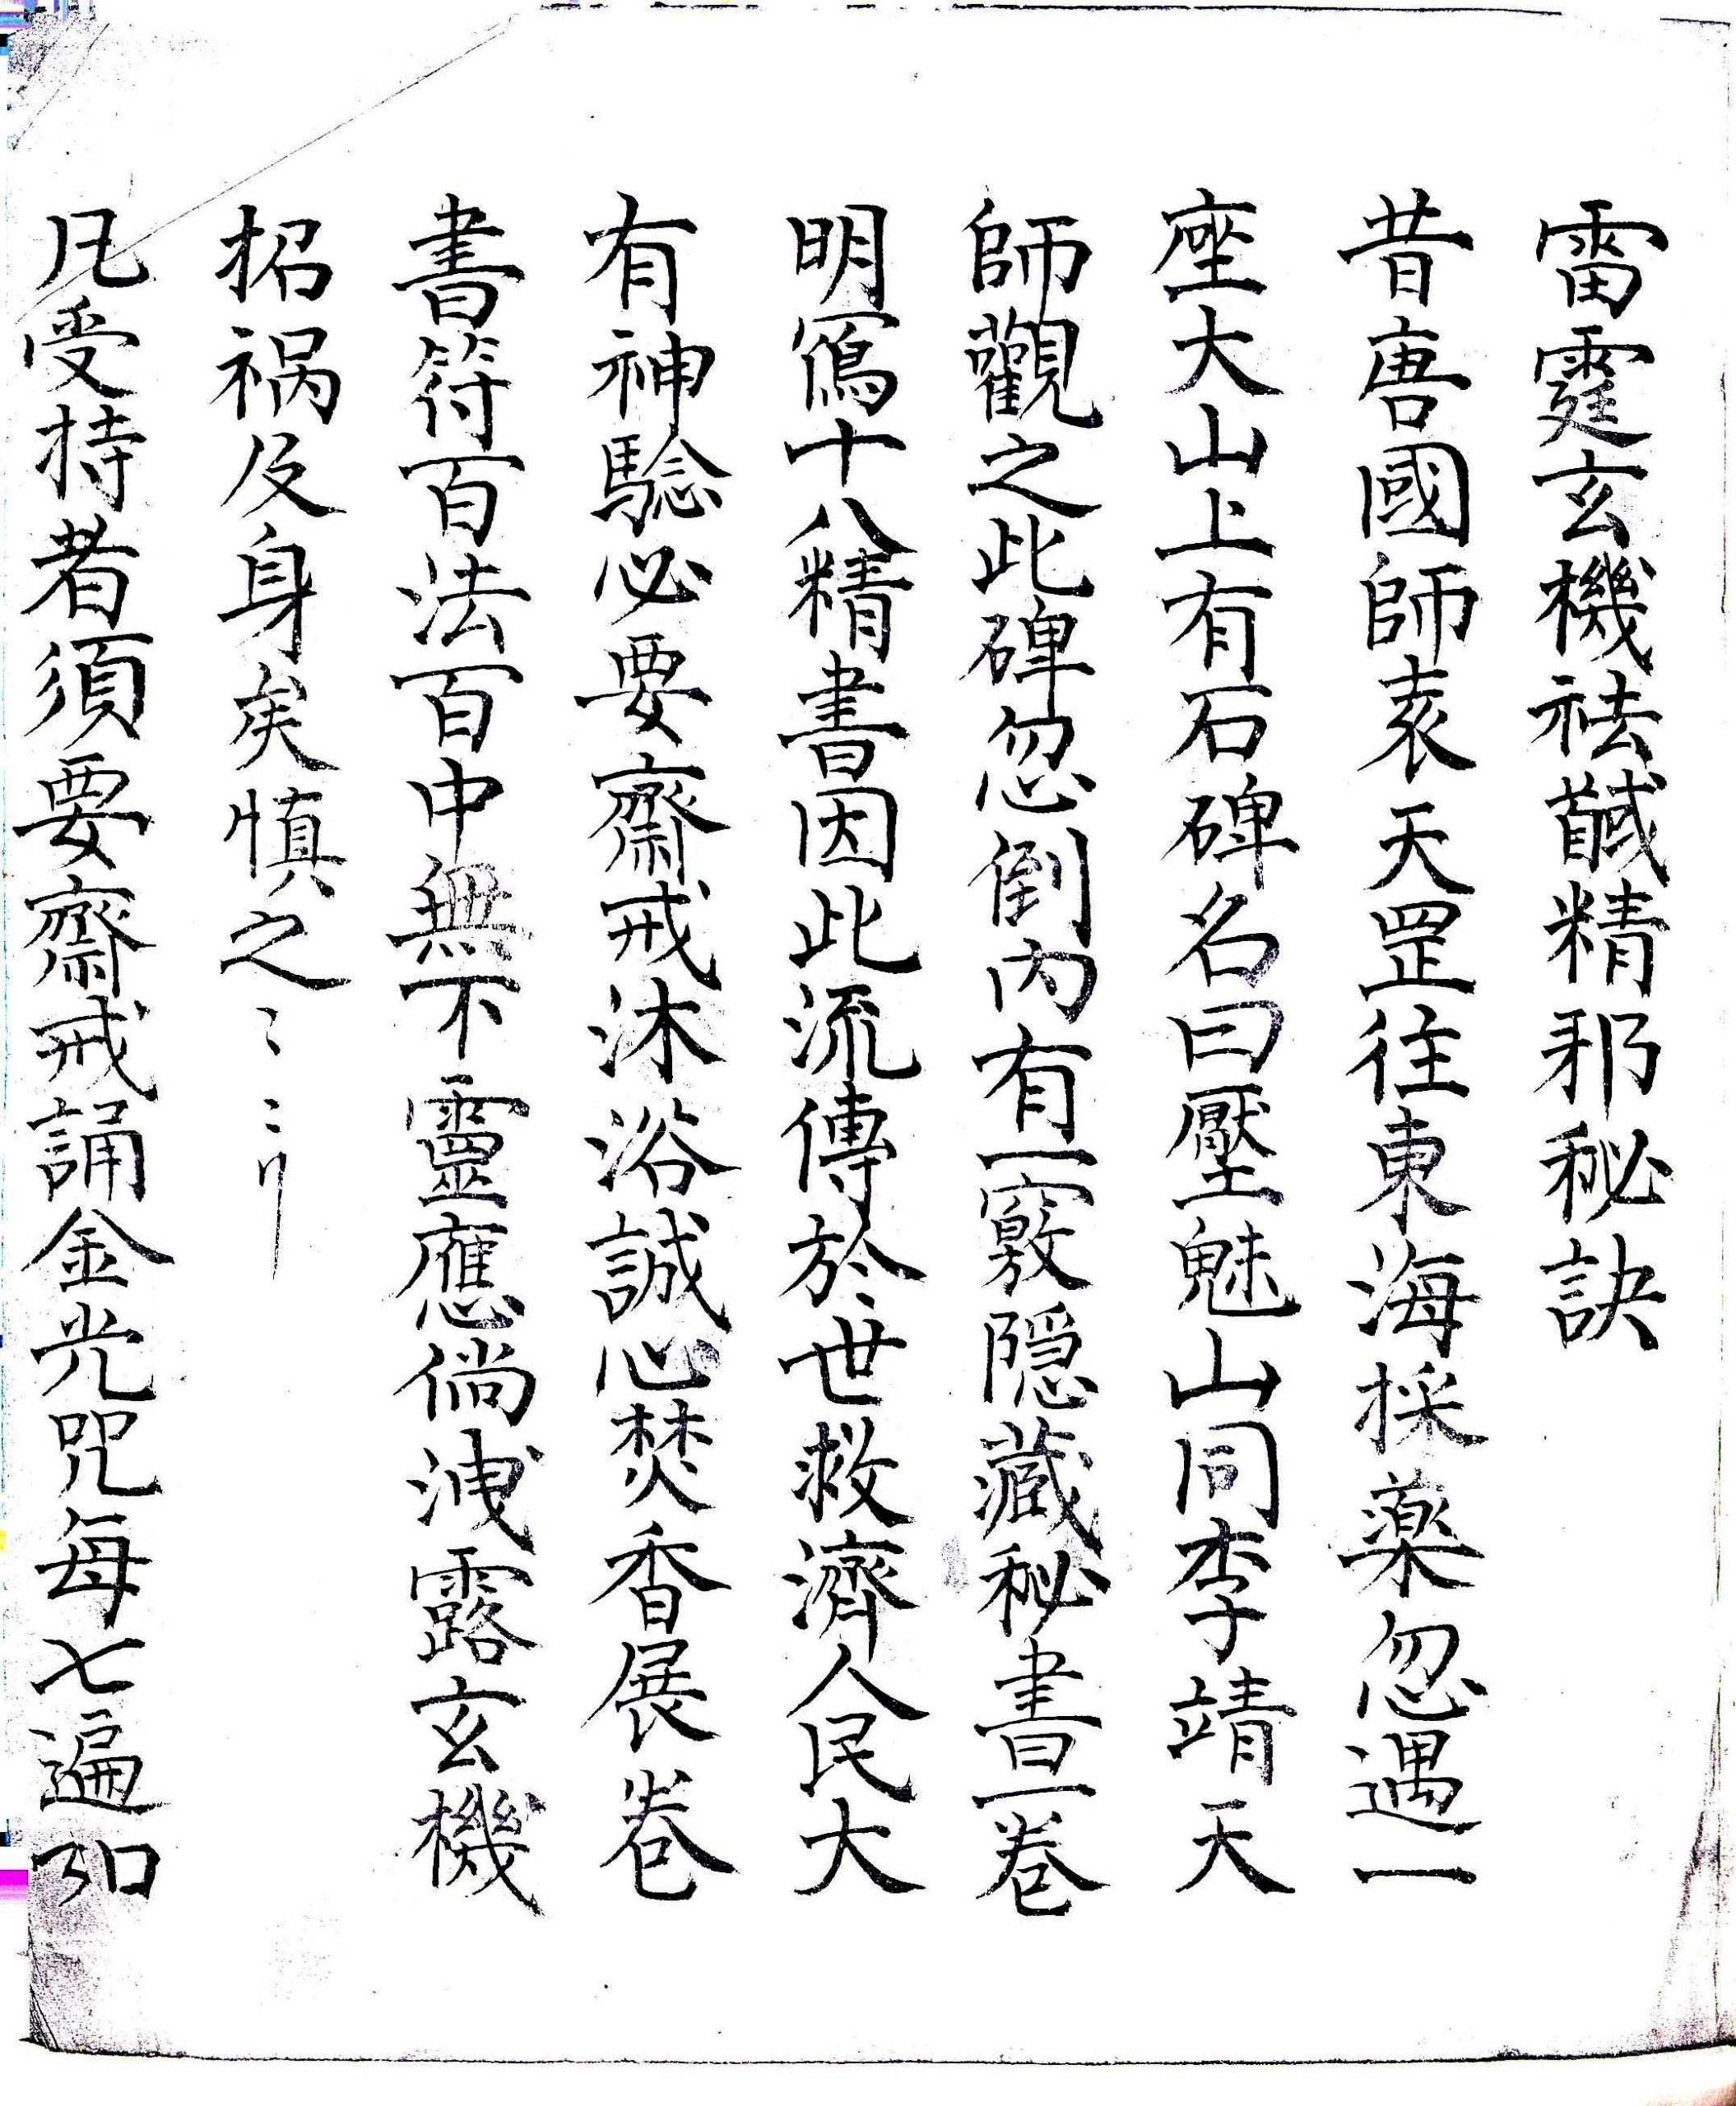 雷霆玄機祛馘精邪秘訣
昔唐國師袁天罡往東海採藥忽遇一
座大山上有石碑名曰壓魅山同李靖天
師觀之此碑忽倒內有一竅隱藏秘書一卷
明寫十八精書因此流傳於世救濟人民大
有神驗必要齋戒沐浴誠心焚香展卷
書符百法百中無不靈應倘洩露玄機
招禍及身矣慎之〻〻
凡受持者須要齋戒誦金光咒每七遍如